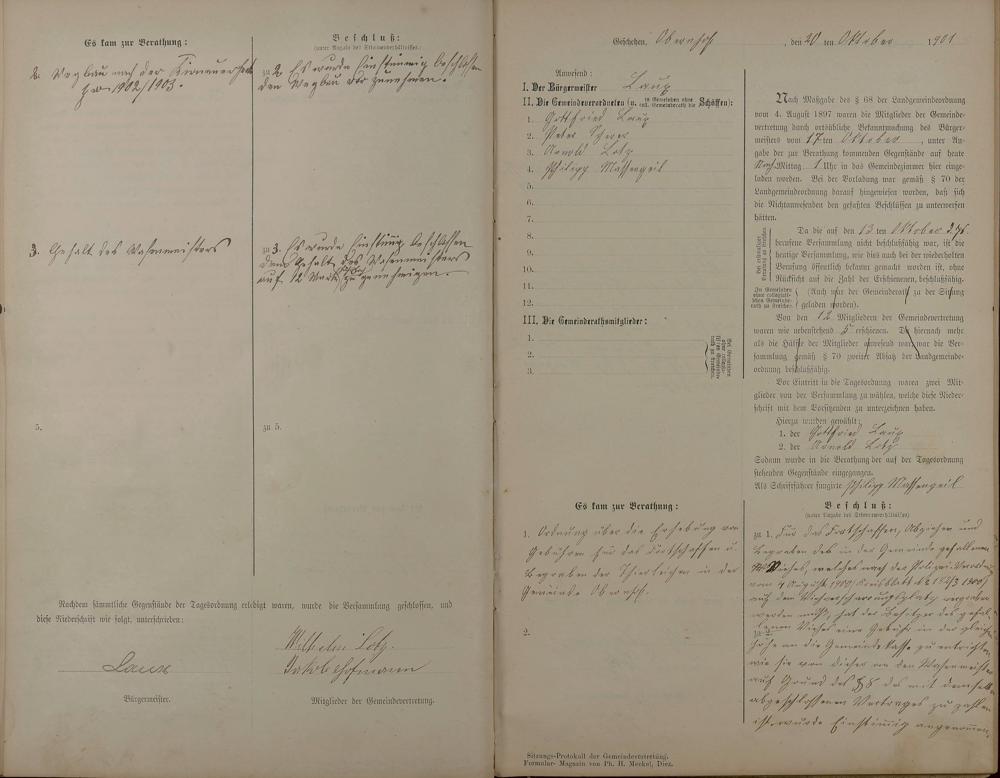 Es kam zur Berathung:
2. Wegbau nach der
pro 1902/1903.
3. Gehalt des Wasenmeisters
5.
Beschluß:
(unter Angabe des Stimmenverhältnisses.)
zu 2. Es wurde Einstimmig beschlossen
den Wegbau vorzunehmen.
zu 3. Es wurde Einstimig beschlossen
dem Gehalt des Wasenmeisters
auf 12 Mark zu genehmigen.
zu 5.
Nachdem sämmtliche Gegenstände der Tagesordnung erledigt waren, wurde die Versammlung geschlossen, und
diese Niederschrift wie folgt, unterschrieben:
Laux
Bürgermeister.
Wilhelm Lotz.
Jakob Hofmann
Mitglieder der Gemeindevertretung.
Geschehen, Obernhof, den 20 ten Oktober 1901
Anwesend:
I. Der Bürgermeister Laux
II. Die Gemeindeverordneten (u. in Gemeinden ohne coll. Gemeinderath die Schöffen):
1. Gottfried Laux
2. Peter
3. Arnold Lotz
4. Philipp Massengeil
5.
6.
7.
8.
9.
10.
11.
12.
III. Die Gemeinderathsmitglieder:
1.
2.
3.
Nach Maßgabe des § 68 der Landgemeindeordnung
vom 4. August 1897 waren die Mitglieder der Gemeinde-
vertretung durch ortsübliche Bekanntmachung des Bürger-
meisters vom 17 ten Oktober, unter An-
gabe der zur Berathung kommenden Gegenstände auf heute
Nach-Mittag 1 Uhr in das Gemeindezimmer hier einge-
laden worden. Bei der Vorladung war gemäß § 70 der
Landgemeindeordnung darauf hingewiesen worden, daß sich
die Nichtanwesenden den gefaßten Beschlüssen zu unterwerfen
hätten.
Da die auf den 13 ten Oktober d. Js.
berufene Versammlung nicht beschlußfähig war, ist die
heutige Versammlung, wie dies auch bei der wiederholten
Berufung öffentlich bekannt gemacht worden ist, ohne
Rücksicht auf die Zahl der Erschienenen, beschlußfähig.
(Auch war der Gemeinderath zu der Sitzung
geladen worden).
Von den 12 Mitgliedern der Gemeindevertretung
waren wie nebenstehend 5 erschienen. Da hiernach mehr
als die Hälfte der Mitglieder anwesend war, war die Ver-
sammlung gemäß § 70 zweiter Absatz der Landgemeinde-
ordnung beschlußfähig.
Vor Eintritt in die Tagesordnung waren zwei Mit-
glieder von der Versammlung zu wählen, welche diese Nieder-
schrift mit dem Vorsitzenden zu unterzeichnen haben.
Hierzu wurden gewählt:
1. der Gottfried Laux
2. der Arnold Lotz
Sodann wurde in die Berathung der auf der Tagesordnung
stehenden Gegenstände eingegangen.
Als Schriftführer fungirte Philipp Massengeil
Es kam zur Berathung:
1. Ordnung über die Erhebung von
Gebühren für das Fortschaffen u.
Begraben der Thierleichen in der
Gemeinde Obernhof.
2.
Beschluß:
(unter Angabe des Stimmenverhältnisses)
zu 1. Für das Fortschaffen, Abziehen und
Begraben des in der Gemeinde gefallenen
Viehes, welches nach der Polizei-Verordng
vom 4 August 1900 (Kreisblatt № 182/3 1900)
auf dem Viehverscharrungsplatz vergraben
werden muß, hat der Besitzer des gefal-
lenen Viehes eine Gebühr in der gleichen
Höhe an die Gemeindekasse zu entrichten
wie sie von dieser an den Wasenmeister
auf Grund des § 8 des mit demselben
abgeschlossenen Vertrages zu zahlen
ist, wurde Einstimmig angenommen.
Sitzungs-Protokoll der Gemeindevertretung.
Formular-Magazin von Ph. H. Meckel, Diez.